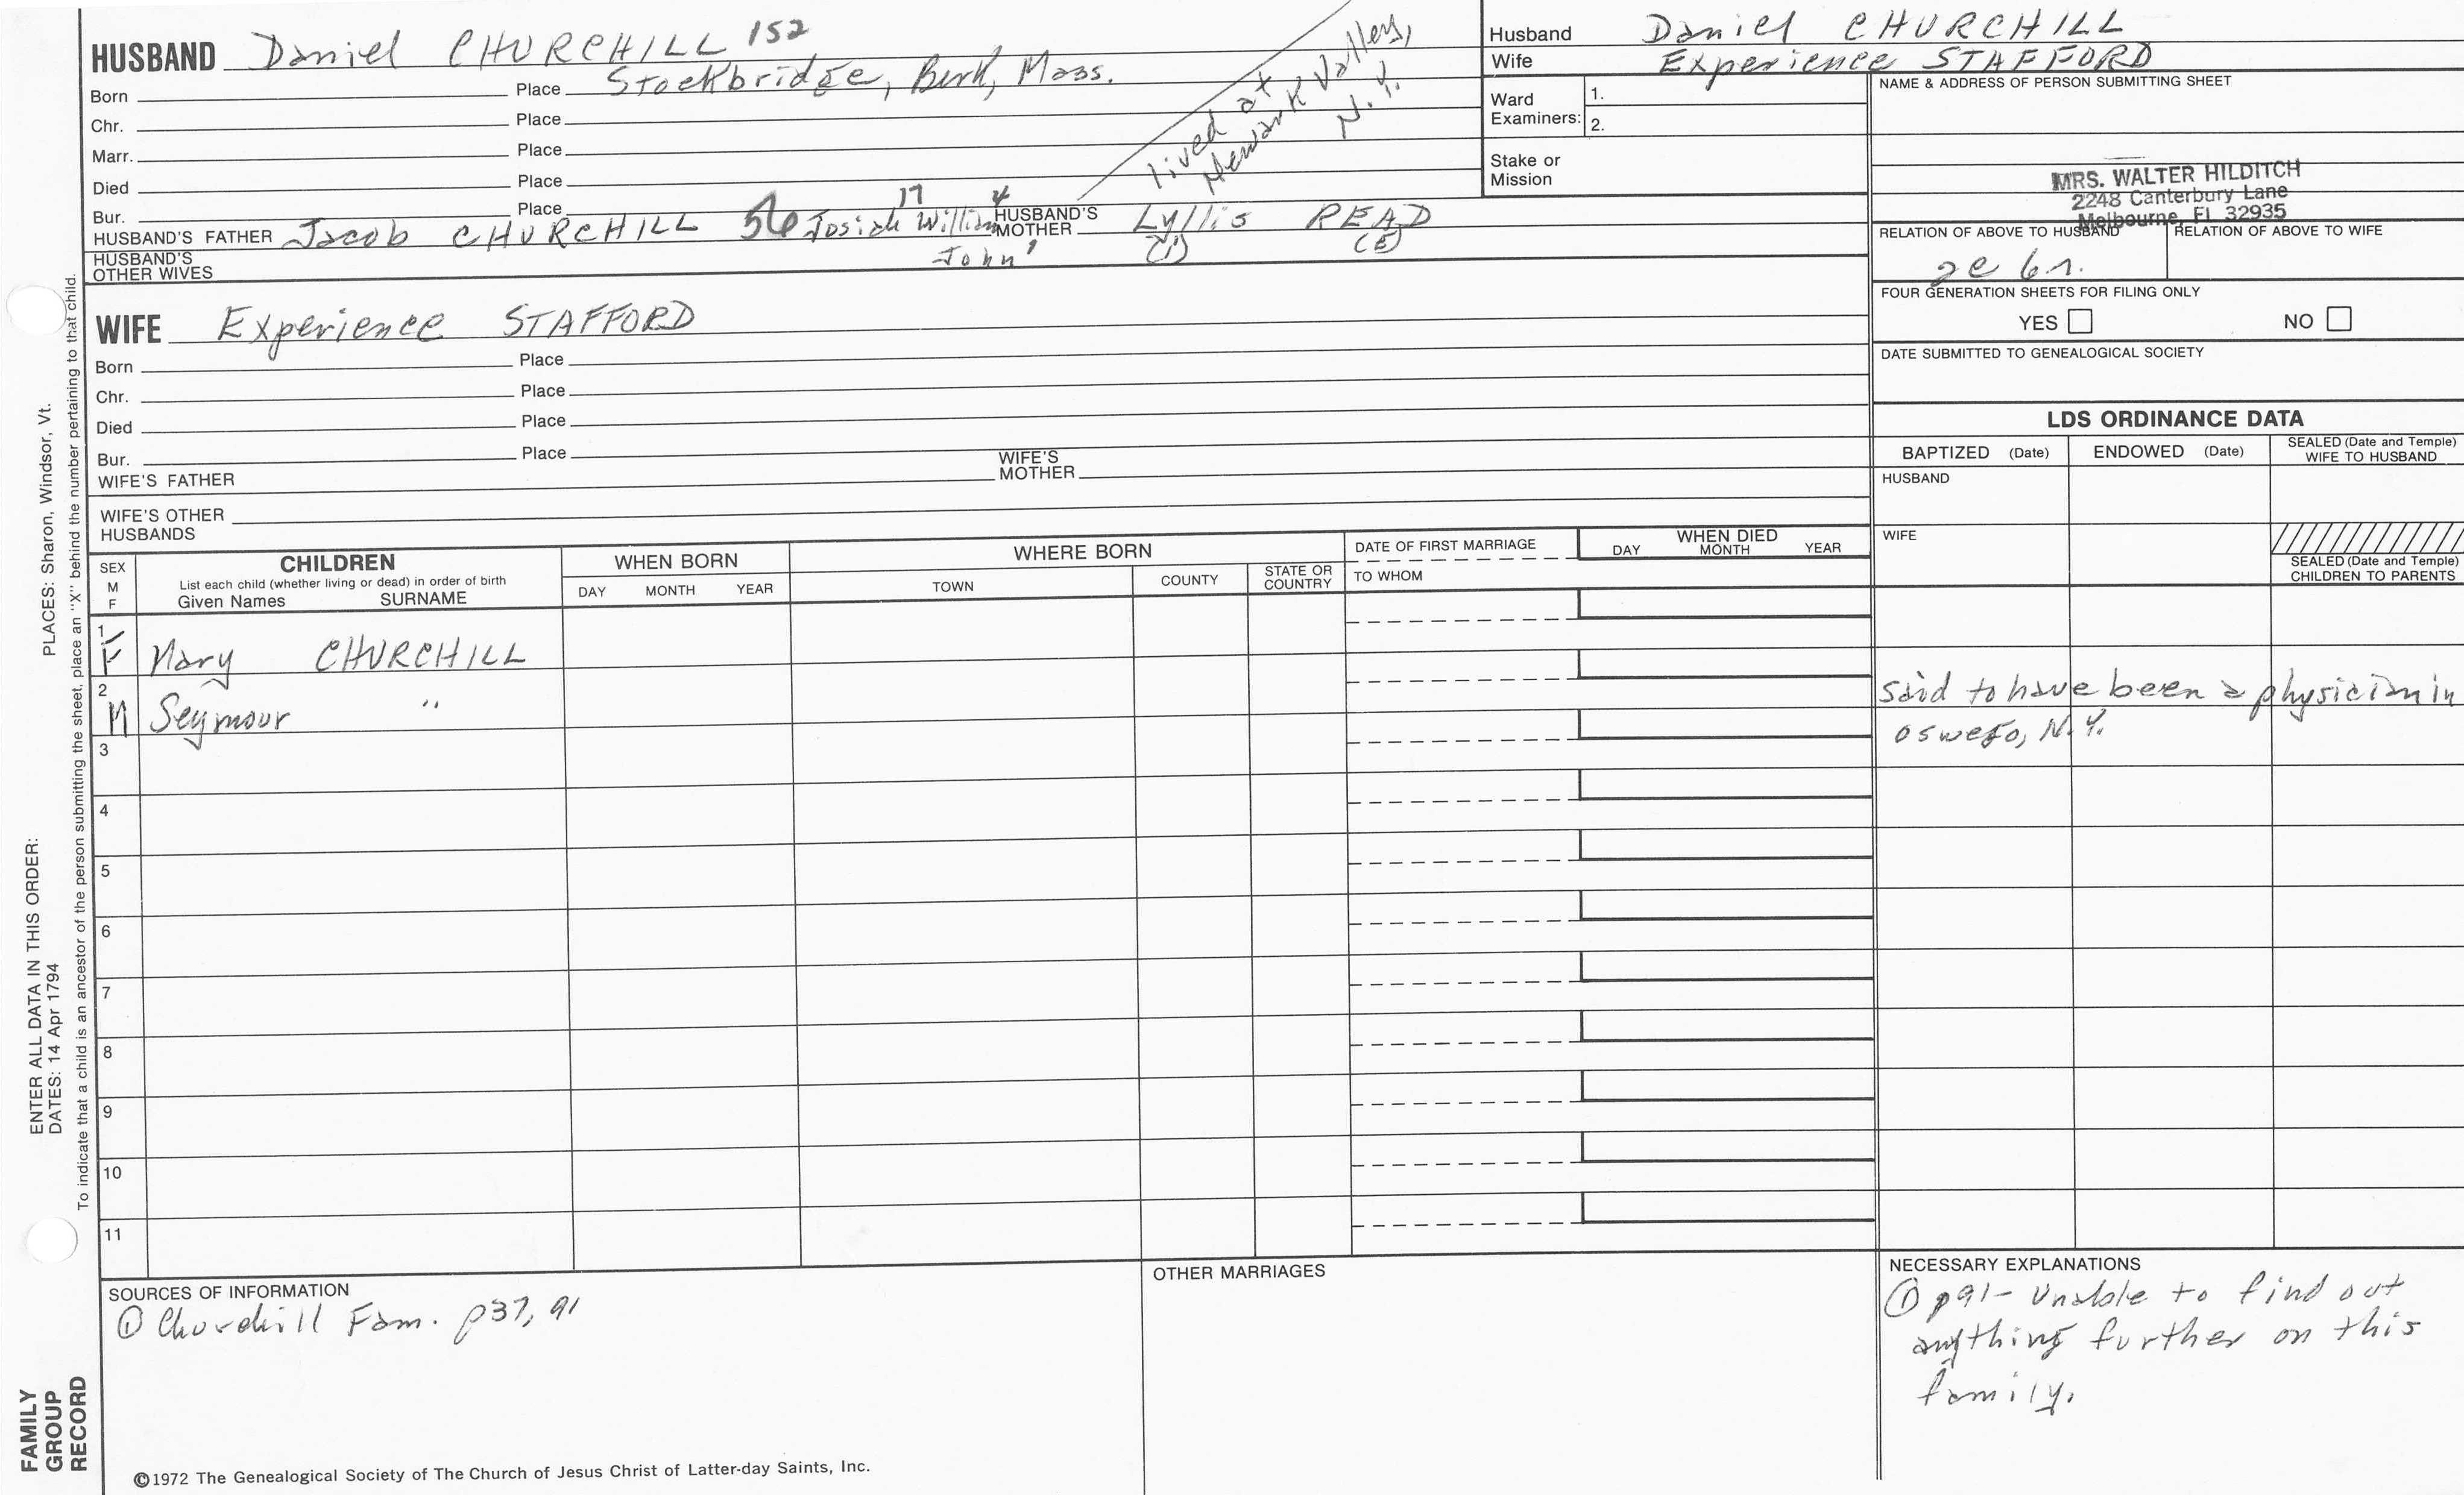 HUSBAND Daniel CHURCHILL 152
Born Place Stockbridge, Berk, Mass.
Chr. Place
Marr. Place
Died Place
Bur. Place
lived at
Newark Valley,
N.Y.
HUSBAND'S FATHER Jacob CHURCHILL 56 Josiah 17 William 4 HUSBAND'S MOTHER Lyllis READ
John' (i) (E)
HUSBAND'S OTHER WIVES
Husband Daniel CHURCHILL
Wife Experience STAFFORD
Ward Examiners: 1.
2.
Stake or Mission
NAME & ADDRESS OF PERSON SUBMITTING SHEET
MRS. WALTER HILDITCH
2248 Canterbury Lane
Melbourne, FL 32935
RELATION OF ABOVE TO HUSBAND RELATION OF ABOVE TO WIFE
2c 6r.
FOUR GENERATION SHEETS FOR FILING ONLY
YES NO
DATE SUBMITTED TO GENEALOGICAL SOCIETY
WIFE Experience STAFFORD
Born Place
Chr. Place
Died Place
Bur. Place
WIFE'S FATHER WIFE'S MOTHER
WIFE'S OTHER HUSBANDS
LDS ORDINANCE DATA
BAPTIZED (Date) ENDOWED (Date) SEALED (Date and Temple) WIFE TO HUSBAND
HUSBAND
WIFE
SEALED (Date and Temple) CHILDREN TO PARENTS
SEX M F
CHILDREN
List each child (whether living or dead) in order of birth
Given Names SURNAME
WHEN BORN
DAY MONTH YEAR
WHERE BORN
TOWN COUNTY STATE OR COUNTRY
DATE OF FIRST MARRIAGE
TO WHOM
WHEN DIED
DAY MONTH YEAR
1 F Mary CHURCHILL
2 M Seymour " said to have been a physician in
Oswego, N.Y.
3
4
5
6
7
8
9
10
11
SOURCES OF INFORMATION
① Churchill Fam. p37, 91
OTHER MARRIAGES
NECESSARY EXPLANATIONS
① p91- Unable to find out
anything further on this
family.
©1972 The Genealogical Society of The Church of Jesus Christ of Latter-day Saints, Inc.
FAMILY
GROUP
RECORD
ENTER ALL DATA IN THIS ORDER:
DATES: 14 Apr 1794 PLACES: Sharon, Windsor, Vt.
To indicate that a child is an ancestor of the person submitting the sheet, place an "X" behind the number pertaining to that child.